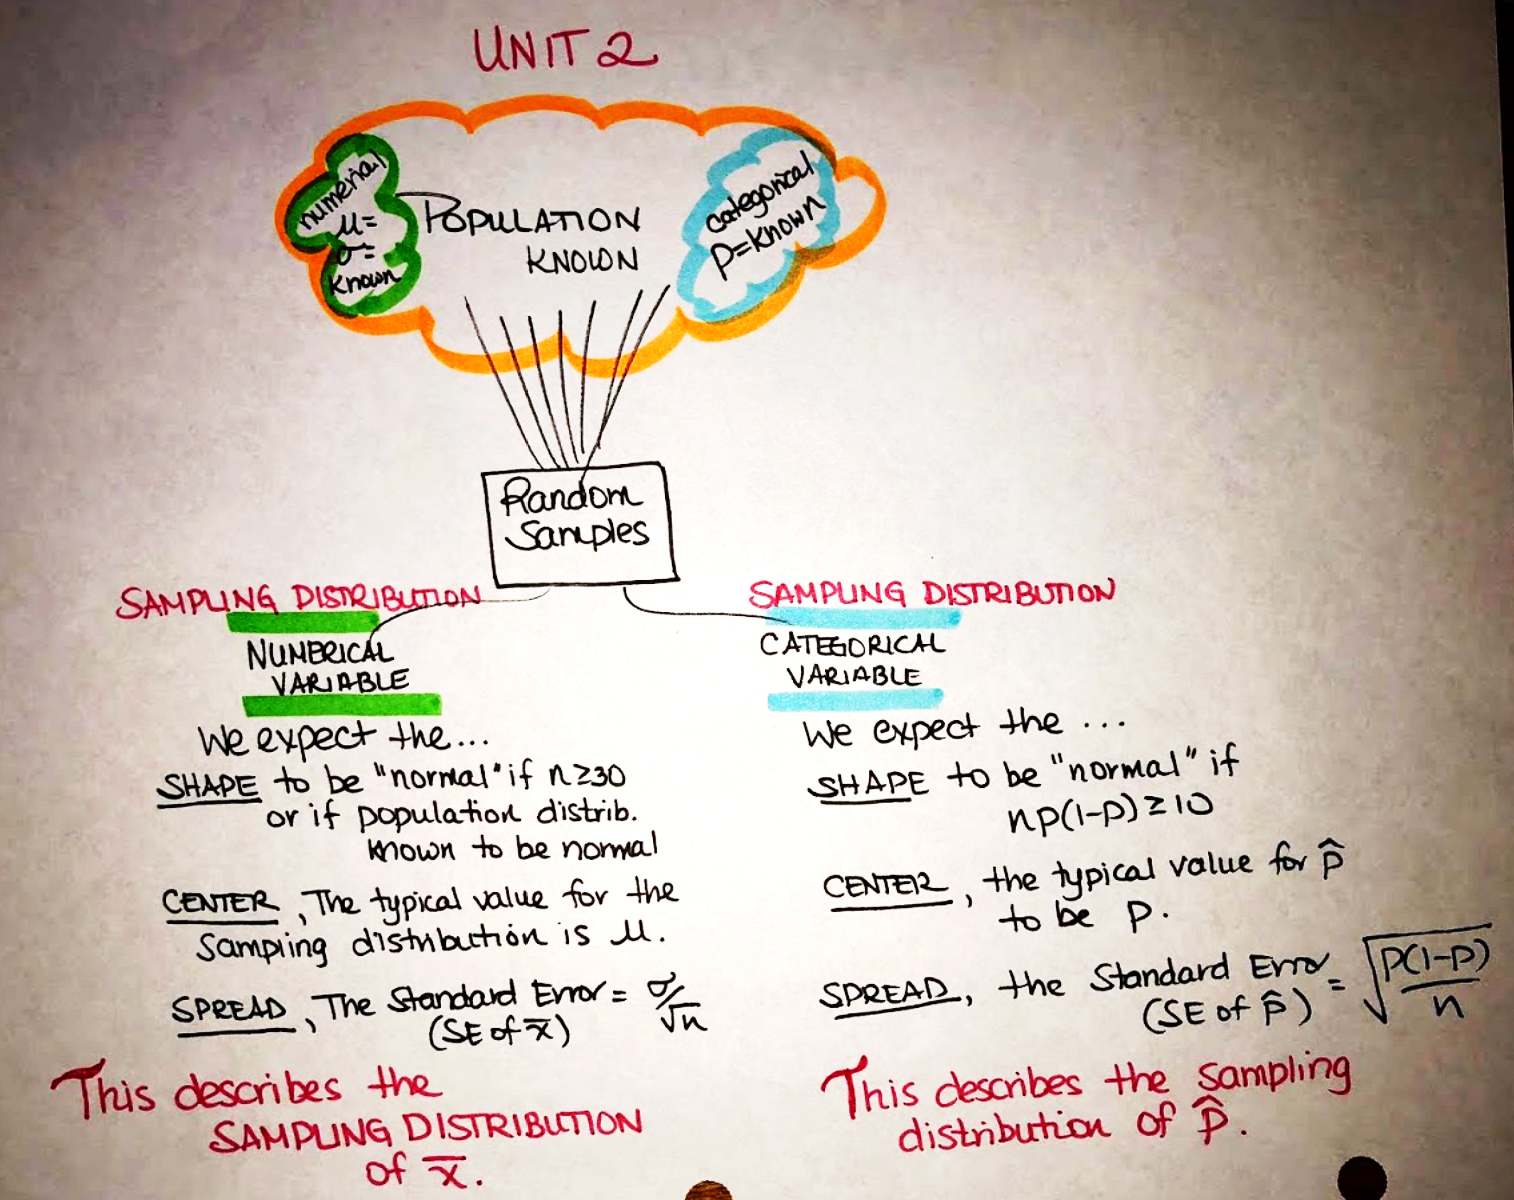 UNIT 2
numerial
μ=
σ=
known
POPULATION
KNOWN
categorical
p=known
Random
Samples
SAMPLING DISTRIBUTION
NUMERICAL
VARIABLE
We expect the...
SHAPE to be "normal" if n≥30
or if population distrib.
known to be normal
CENTER, The typical value for the
Sampling distribution is μ.
SPREAD, The Standard Error = σ/√n
(SE of x̅)
This describes the
SAMPLING DISTRIBUTION
of x̅.
SAMPLING DISTRIBUTION
CATEGORICAL
VARIABLE
We expect the ...
SHAPE to be "normal" if
np(1-p)≥10
CENTER, the typical value for p̂
to be p.
SPREAD, the Standard Error = √(p(1-p)/n)
(SE of p̂)
This describes the sampling
distribution of p̂.